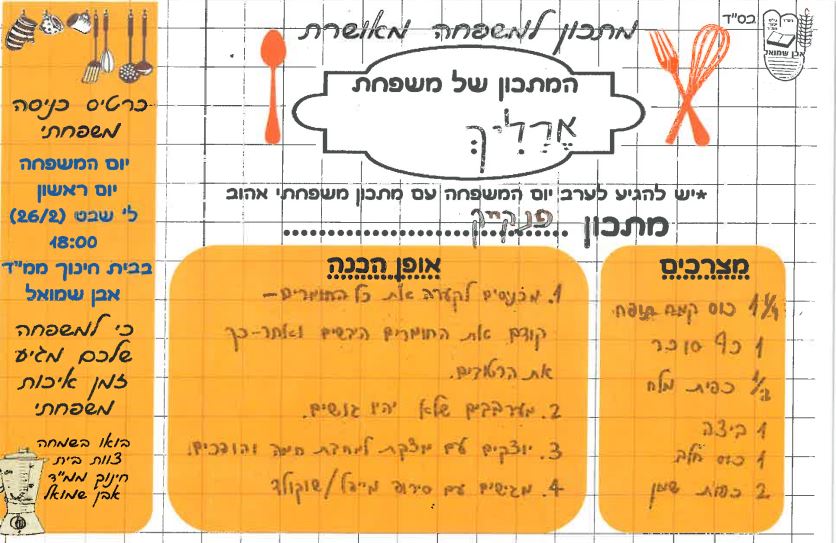 בס"ד
אבן שמואל
מתכון למשפחה מאושרת
המתכון של משפחת
אֶרְלִיךְ
*יש להגיע לערב יום המשפחה עם מתכון משפחתי אהוב
מתכון פנקייק
מצרכים
1 1/4 כוס קמח תופח
1 כף סוכר
1/2 כפית מלח
1 ביצה
1 כוס חלב
2 כפות שמן
אופן הכנה
1. מכניסים לקערה את כל החומרים-
קודם את החומרים היבשים ואחר-כך
את הרטובים.
2. מערבבים שלא יהיו גושים.
3. יוצקים עם מצקת למחבת חמה והופכים.
4. מגישים עם סירופ מייפל/שוקולד
כרטיס כניסה
משפחתי
יום המשפחה
יום ראשון
ל' שבט (26/2)
18:00
בבית חינוך ממ"ד
אבן שמואל
כי למשפחה
שלכם מגיע
זמן איכות
משפחתי
בואו בשמחה
צוות בית
חינוך ממ"ד
אבן שמואל